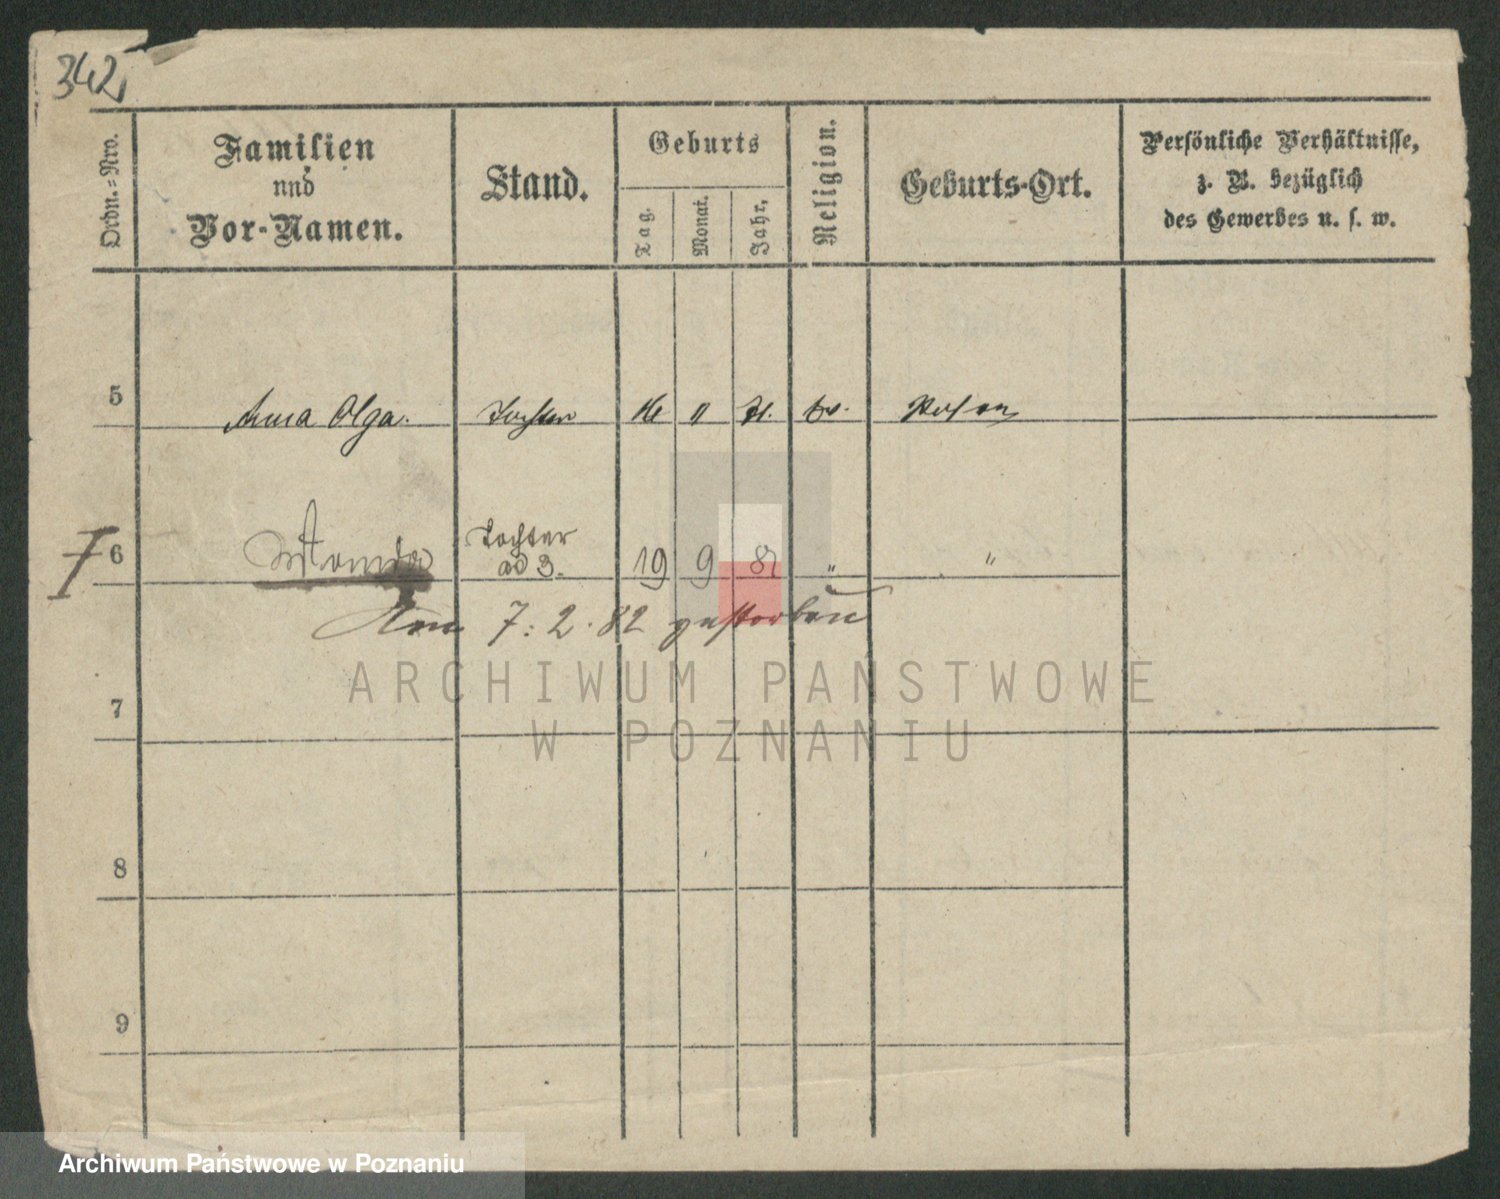 342
Ordn.=Nro.
Familien
und
Vor-Namen.
Stand.
Geburts
Tag.
Monat.
Jahr.
Religion.
Geburts-Ort.
Persönliche Verhältnisse,
z. B. bezüglich
des Gewerbes u. s. w.
5 Anna Olga. Tochter 16 11 71. Ev. Posen
6 Wanda Tochter
ad 3. 19 9 81 " "
Am 7. 2. 82 gestorben
7
8
9
ARCHIWUM PAŃSTWOWE
W POZNANIU
Archiwum Państwowe w Poznaniu